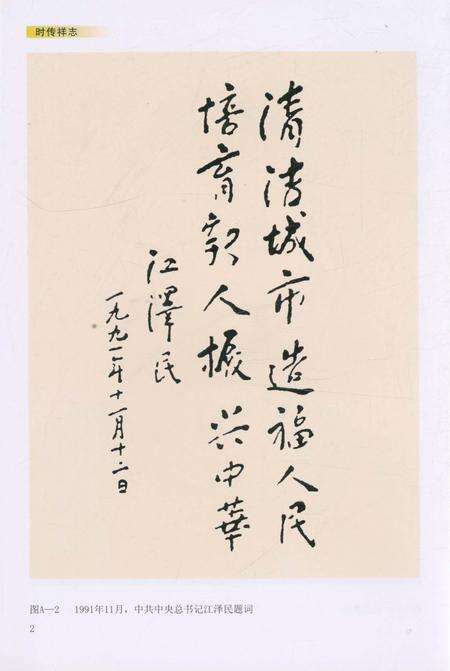 时传祥志
清洁城市造福人民
培育新人振兴中华
江澤民
一九九一年十一月十二日
图A—2 1991年11月，中共中央总书记江泽民题词
2